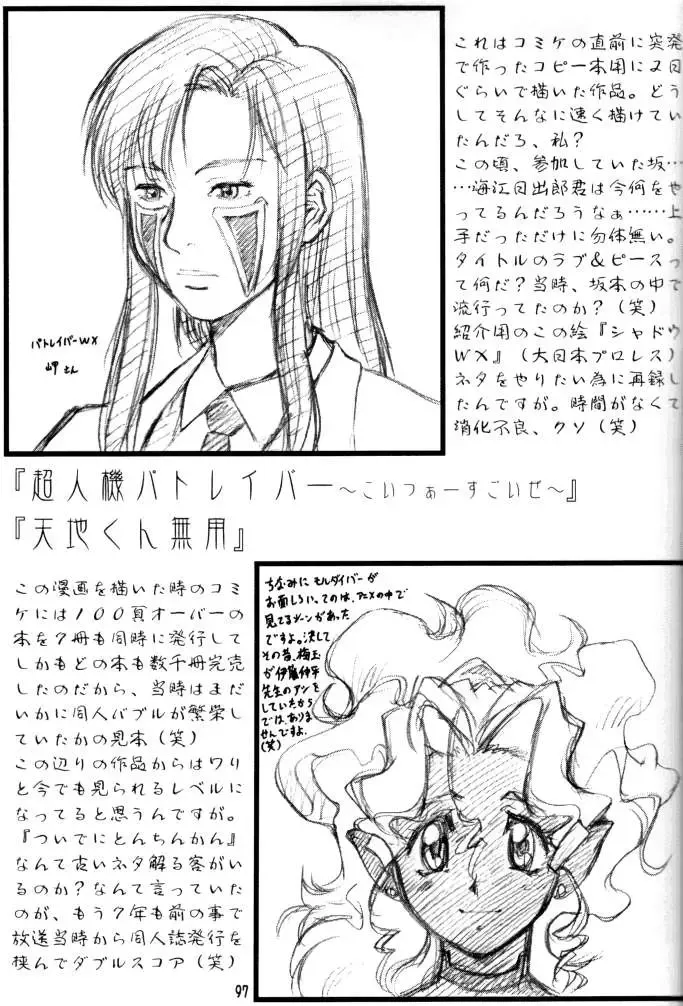 これはコミケの直前に突発
で作ったコピー本用に2日
ぐらいで描いた作品。どう
してそんなに速く描けてい
たんだろ、私?
この頃、参加していた坂…
…海江日出郎君は今何をや
ってるんだろうなぁ……上
手だっただけに勿体無い。
タイトルのラブ&ピースっ
て何だ?当時、坂本の中で
流行ってたのか?(笑)
紹介用のこの絵『シャドウ
WX』(大日本プロレス)
ネタをやりたい為に再録し
たんですが。時間がなくて
消化不良、クソ(笑)
パトレイバーWX
岬さん
『超人機パトレイバー～こいつぁーすごいぜ～』
『天地くん無用』
この漫画を描いた時のコミ
ケには100頁オーバーの
本を7冊も同時に発行して
しかもどの本も数千冊完売
したのだから、当時はまだ
いかに同人バブルが繁栄し
ていたかの見本(笑)
この辺りの作品からはワり
と今でも見られるレベルに
なってると思うんですが。
『ついでにとんちんかん』
なんて古いネタ解る客がい
るのか?なんて言っていた
のが、もう7年も前の事で
放送当時から同人誌発行を
挟んでダブルスコア(笑)
ちなみにモルダイバーが
お面しろい、てのは、アニメの中で
見てるシーンがあった
ですよ。決して
その昔、梅玉
が伊藤伸平
先生のアシを
していたから
では、ありま
せんですよ。
(笑)
97